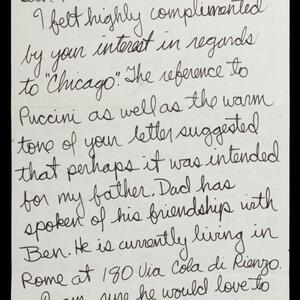 I felt highly complimented
by your interest in regards
to "Chicago". The reference to
Puccini as well as the warm
tone of your letter suggested
that perhaps it was intended
for my father. Dad has
spoken of his friendship with
Ben. He is currently living in
Rome at 180 Via Cola di Rienzo.
sure he would love to